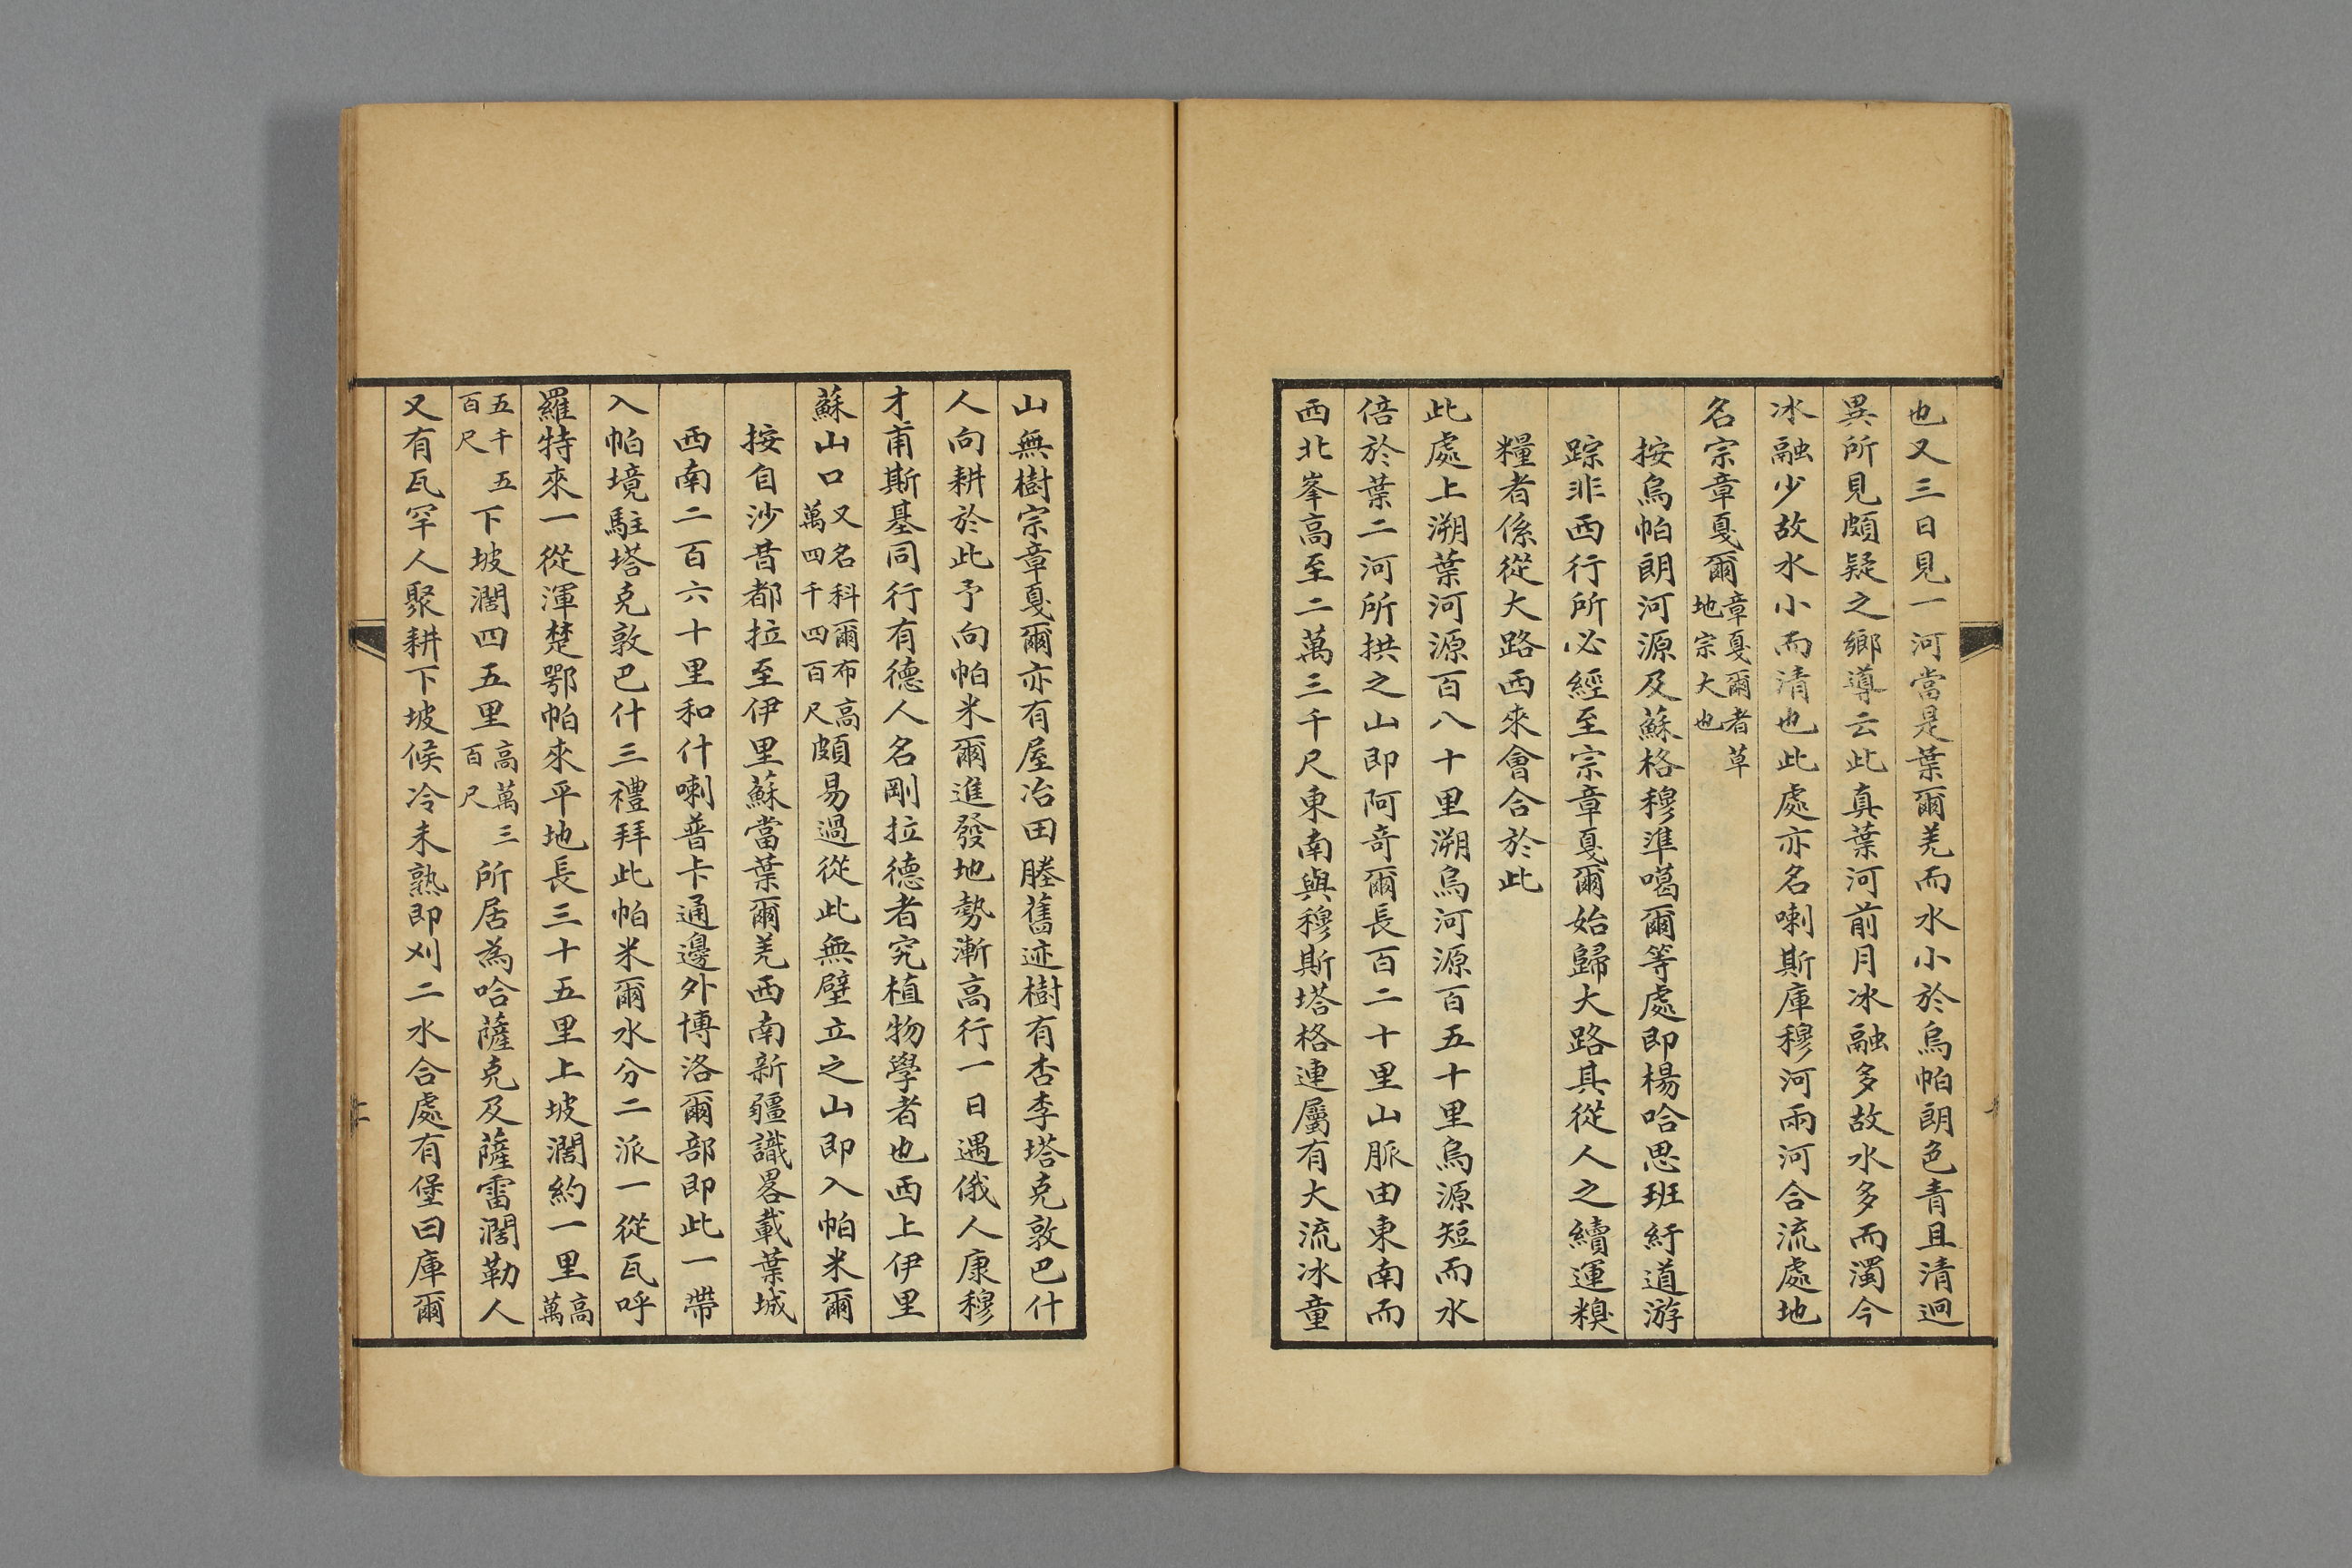 也又三日見一河當是葉爾羌而水小於烏帕朗色青且清迥
異所見頗疑之鄉導云此真葉河前月冰融多故水多而濁今
冰融少故水小而清也此處亦名喇斯庫穆河兩河合流處地
名宗章戛爾章戛爾者草地宗大也
按烏帕朗河源及蘇格穆準噶爾等處即楊哈思班紆道游
踪非西行所必經至宗章戛爾始歸大路其從人之續運糗
糧者係從大路西來會合於此
此處上溯葉河源百八十里溯烏河源百五十里烏源短而水
倍於葉二河所拱之山即阿奇爾長百二十里山脈由東南而
西北峯高至二萬三千尺東南與穆斯塔格連屬有大流冰童
山無樹宗章戛爾亦有屋冶田塍舊迹樹有杏李塔克敦巴什
人向耕於此予向帕米爾進發地勢漸高行一日遇俄人康穆
才甫斯基同行有德人名剛拉德者究植物學者也西上伊里
蘇山口又名科爾布高萬四千四百尺頗易過從此無壁立之山即入帕米爾
按自沙昔都拉至伊里蘇當葉爾羌西南新疆識畧載葉城
西南二百六十里和什喇普卡通邊外博洛爾部即此一帶
入帕境駐塔克敦巴什三禮拜此帕米爾水分二派一從瓦呼
羅特來一從渾楚鄂帕來平地長三十五里上坡濶約一里高萬
五千五百尺下坡濶四五里高萬三百尺所居為哈薩克及薩雷濶勒人
又有瓦罕人聚耕下坡候冷未熟即刈二水合處有堡曰庫爾